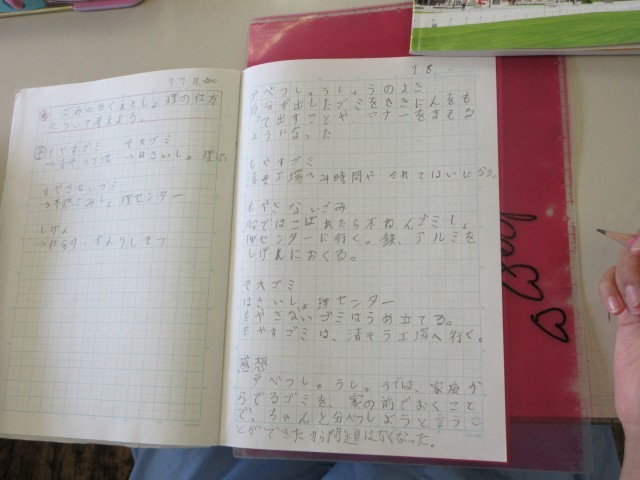 7 7
め ごみのゆくえとしょ理の仕方
について考えよう。
もやすゴミ そ大ゴミ
→清そう工場 →はさいしょ理
もやさないゴミ
→不ねんごみしょ理センター
しげん
7 8
戸べつしゅうしゅうのよさ
自分が出したゴミをせきにんをも
って出すことや、マナーをまもる
ようになった
もやすゴミ
清そう工場→24時間や かれてはいになる
もやさないごみ
船ではこばれたら不ねんゴミしょ
理センターに行く。鉄、アルミを
しげんにおくる。
そ大ゴミ
はさいしょ理センター
もやさないゴミはうめ立てる。
もやすゴミは、清そう工場へ行く。
感想
戸べつしゅうしゅうでは、家庭か
らでるゴミを、家の前でおくこと
で、ちゃんと分べつしようと言うこ
とができたから はなくなった。